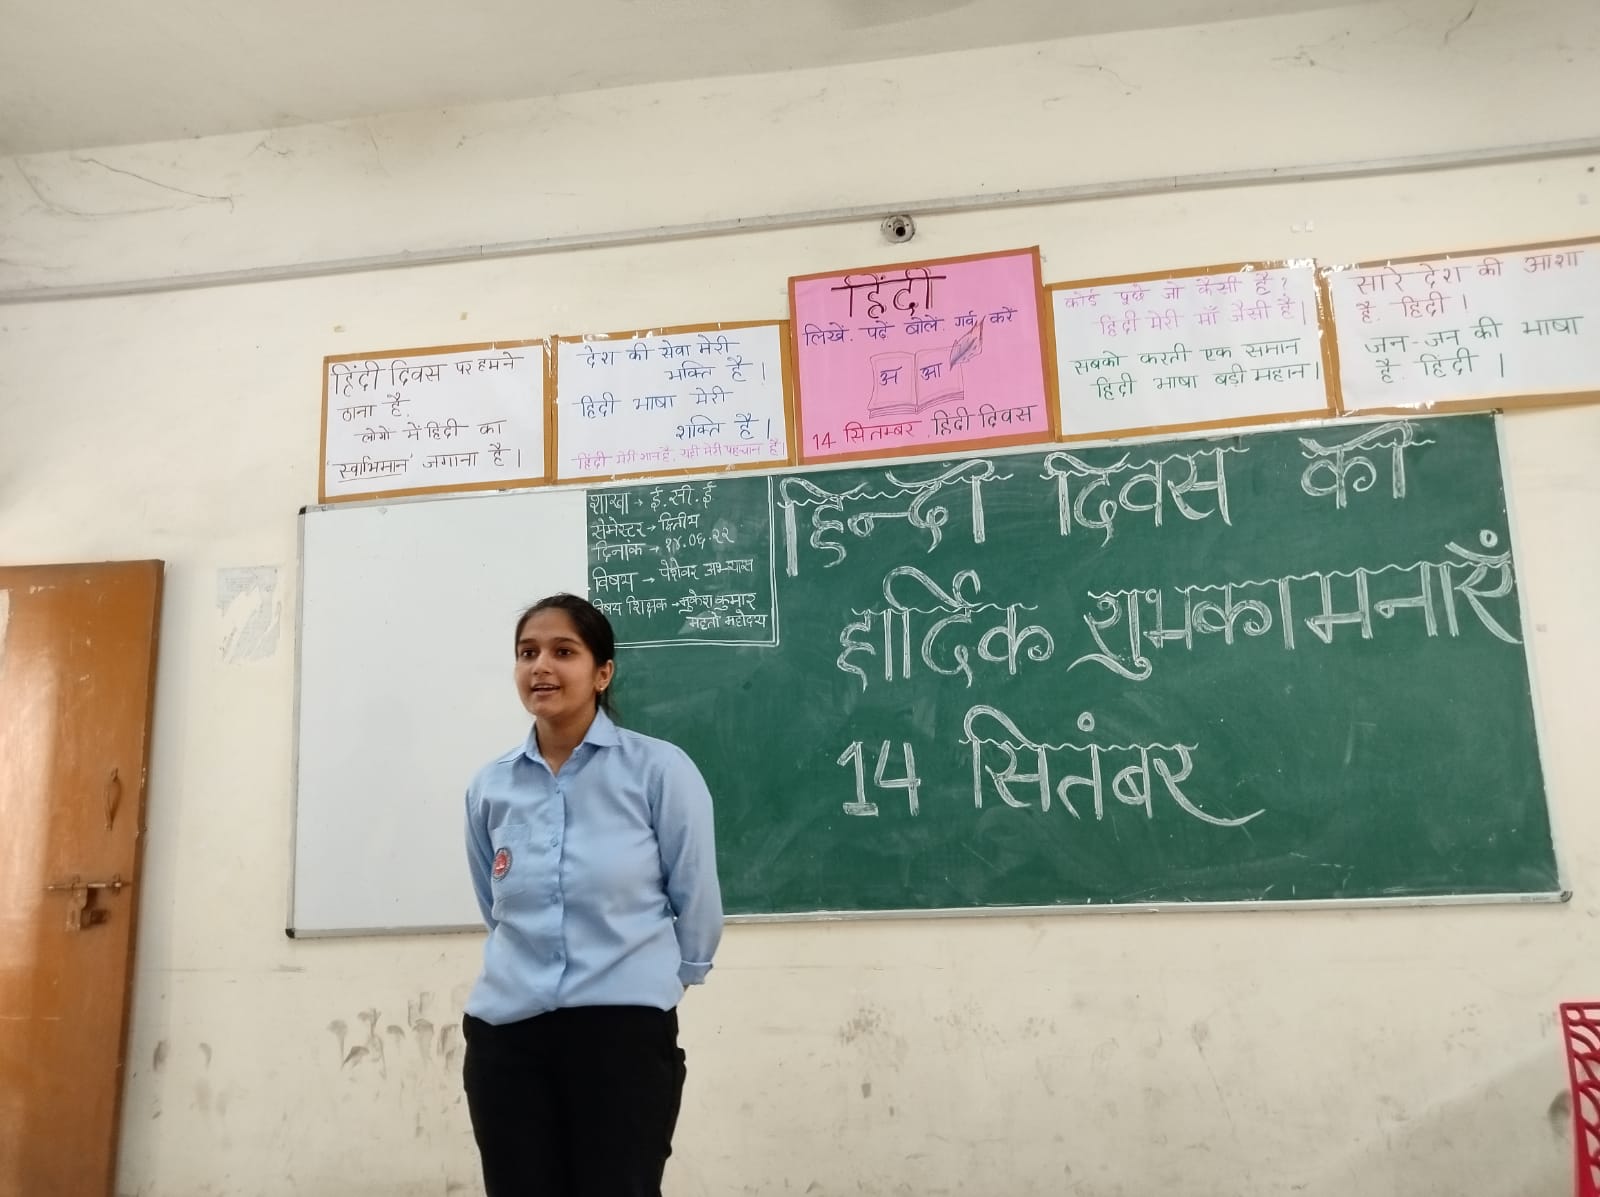 हिंदी दिवस पर हमने
ठाना है.
लोगो में हिंदी का
'स्वाभिमान' जगाना है।
देश की सेवा मेरी
भक्ति है।
हिंदी भाषा मेरी
शक्ति है।
हिंदी मेरी शान है, यही मेरी पहचान है
हिंदी
लिखें. पढ़ें बोलें. गर्व करें
अ आ
14 सितम्बर .हिंदी दिवस
कोई पूछे जो कैसी है?
हिंदी मेरी माँ जैसी है।
सबको करती एक समान
हिंदी भाषा बड़ी महान।
सारे देश की आशा
है. हिंदी।
जन-जन की भाषा
है. हिंदी।
शाखा → ई.सी.ई
सेमेस्टर → द्वितीय
दिनांक → १४.०९.२२
विषय → पेशेवर अभ्यास
विषय शिक्षक → मुकेश कुमार
महतो महोदय
हिन्दी दिवस की
हार्दिक शुभकामनाएँ
14 सितंबर